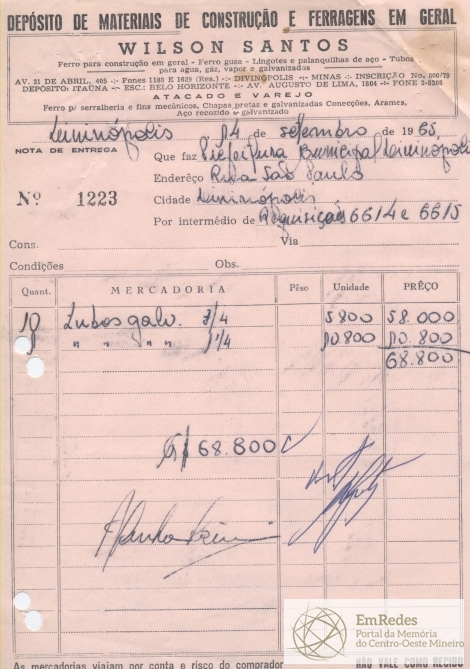 DEPÓSITO DE MATERIAIS DE CONSTRUÇÃO E FERRAGENS EM GERAL
WILSON SANTOS
Ferro para construção em geral - Ferro gusa - Lingotes e palanquilhas de aço - Tubos
para agua, gáz, vapor e galvanizados
AV. 21 DE ABRIL, 405 -:- Fones 1180 E 1629 (Res.) -:- DIVINÓPOLIS - MINAS -:- INSCRIÇÃO No. 800/79
DEPÓSITO: ITAÚNA -:- ESC.: BELO HORIZONTE -:- AV. AUGUSTO DE LIMA, 1804 -:- FONE 2-8203
ATACADO E VAREJO
Ferro p/ serralheria e fins mecânicos, Chapas pretas e galvanizadas Conecções, Arames,
Aço recozido e galvanizado
Divinópolis 14 de setembro de 1965
NOTA DE ENTREGA
Que faz Prefeitura Municipal Divinópolis
Enderêço Rua São Paulo
Nº 1223
Cidade Divinópolis
Por intermédio de Requisição 6614 e 6615
Cons. Via
Condições Obs.
Quant. MERCADORIA Pêso Unidade PRÊÇO
10 Tubos galv. 3/4 5.800 58.000
1 " " " " 1 1/4 10.800 10.800
68.800
Cr$ 68.800
EmRedes
Portal da Memória
do Centro-Oeste Mineiro
As mercadorias viajam por conta e risco do comprador
NÃO VALE COMO RECIBO